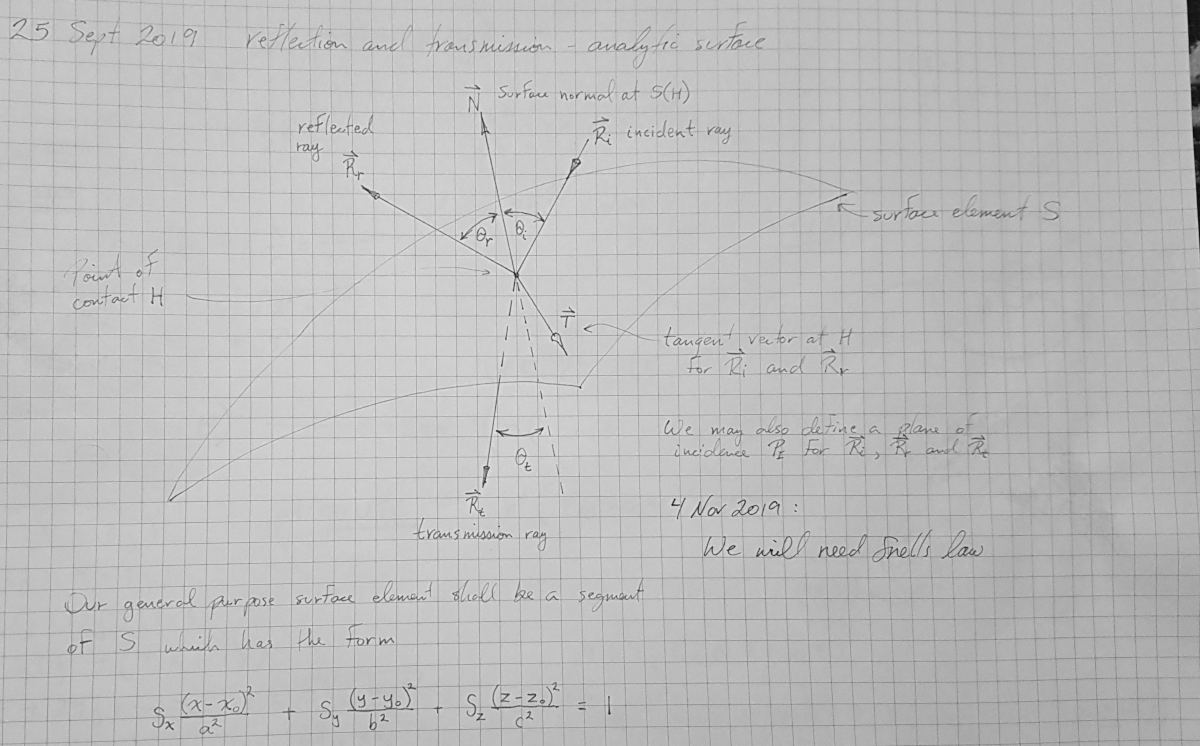 25 Sept 2019 reflection and transmission - analytic surface
N⃗ surface normal at S(H)
reflected
ray
R⃗r
R⃗i incident ray
surface element S
θr θi
Point of
contact H
T⃗
tangent vector at H
for R⃗i and R⃗r
We may also define a plane of
incidence PI for R⃗i, R⃗r and R⃗t
θt
R⃗t
transmission ray
4 Nov 2019 :
We will need Snells law
Our general purpose surface element shall be a segment
of S which has the form
Sx (x-x₀)²/a² + Sy (y-y₀)²/b² + Sz (z-z₀)²/c² = 1